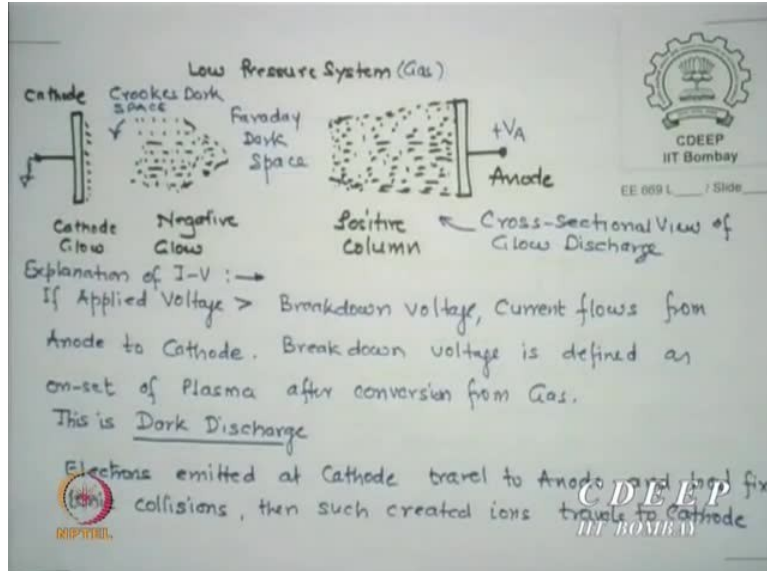 Low Pressure System (Gas)
Cathode
Crookes Dark
SPACE
Faraday
Dark
Space
+VA
Anode
CDEEP
IIT Bombay
EE 669 L___ / Slide___
Cathode
Glow
Negative
Glow
Positive
Column
Cross-Sectional View of
Glow Discharge
Explanation of I-V :→
If Applied Voltage > Breakdown voltage, Current flows from
Anode to Cathode. Breakdown voltage is defined as
on-set of Plasma after conversion from Gas.
This is Dark Discharge
Electrons emitted at Cathode travel to Anode and
collisions, then such created ions travels to Cathode
NPTEL
CDEEP
IIT BOMBAY